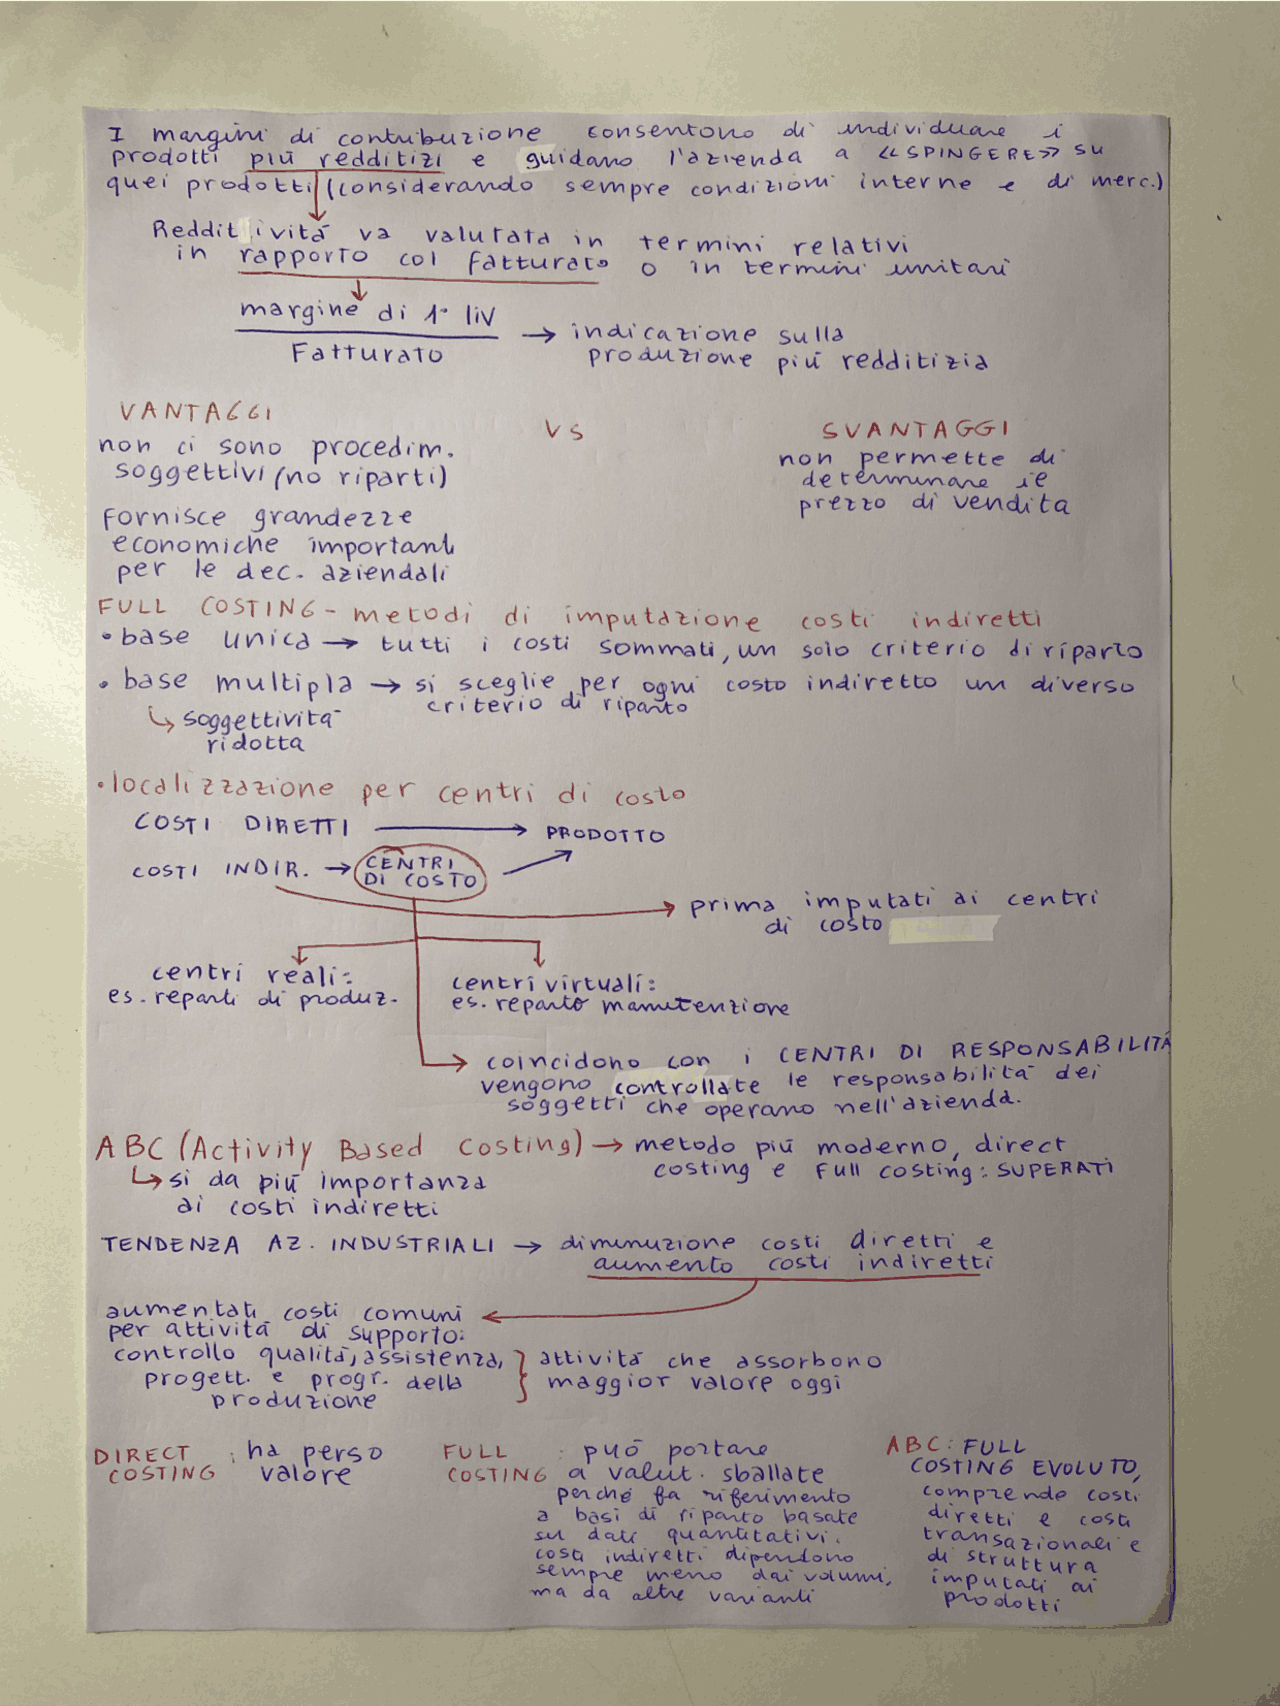 I margini di contribuzione consentono di individuare i
prodotti più redditizi e guidano l'azienda a «SPINGERE» su
quei prodotti (considerando sempre condizioni interne e di merc.)
Redditività va valutata in termini relativi
in rapporto col fatturato o in termini unitari
margine di 1° liv
Fatturato
→ indicazione sulla
produzione più redditizia
VANTAGGI
VS
SVANTAGGI
non ci sono procedim.
soggettivi (no riparti)
fornisce grandezze
economiche importanti
per le dec. aziendali
non permette di
determinare il
prezzo di vendita
FULL COSTING - metodi di imputazione costi indiretti
• base unica → tutti i costi sommati, un solo criterio di riparto
• base multipla → si sceglie per ogni costo indiretto un diverso
criterio di riparto
↳ soggettività
ridotta
• localizzazione per centri di costo
COSTI DIRETTI → PRODOTTO
COSTI INDIR. → CENTRI
DI COSTO
→ prima imputati ai centri
di costo
centri reali:
es. reparti di produz.
centri virtuali:
es. reparto manutenzione
→ coincidono con i CENTRI DI RESPONSABILITÀ
vengono controllate le responsabilità dei
soggetti che operano nell'azienda.
ABC (Activity Based Costing) → metodo più moderno, direct
costing e full costing: SUPERATI
↳ si da più importanza
ai costi indiretti
TENDENZA AZ. INDUSTRIALI → diminuzione costi diretti e
aumento costi indiretti
aumentati costi comuni
per attività di supporto:
controllo qualità, assistenza,
progett. e progr. della
produzione
} attività che assorbono
maggior valore oggi
DIRECT
COSTING
: ha perso
valore
FULL
COSTING
: può portare
a valut. sballate
perché fa riferimento
a basi di riparto basate
su dati quantitativi.
costi indiretti dipendono
sempre meno dai volumi,
ma da altre varianti
ABC: FULL
COSTING EVOLUTO,
comprende costi
diretti e costi
transazionali e
di struttura
imputati ai
prodotti